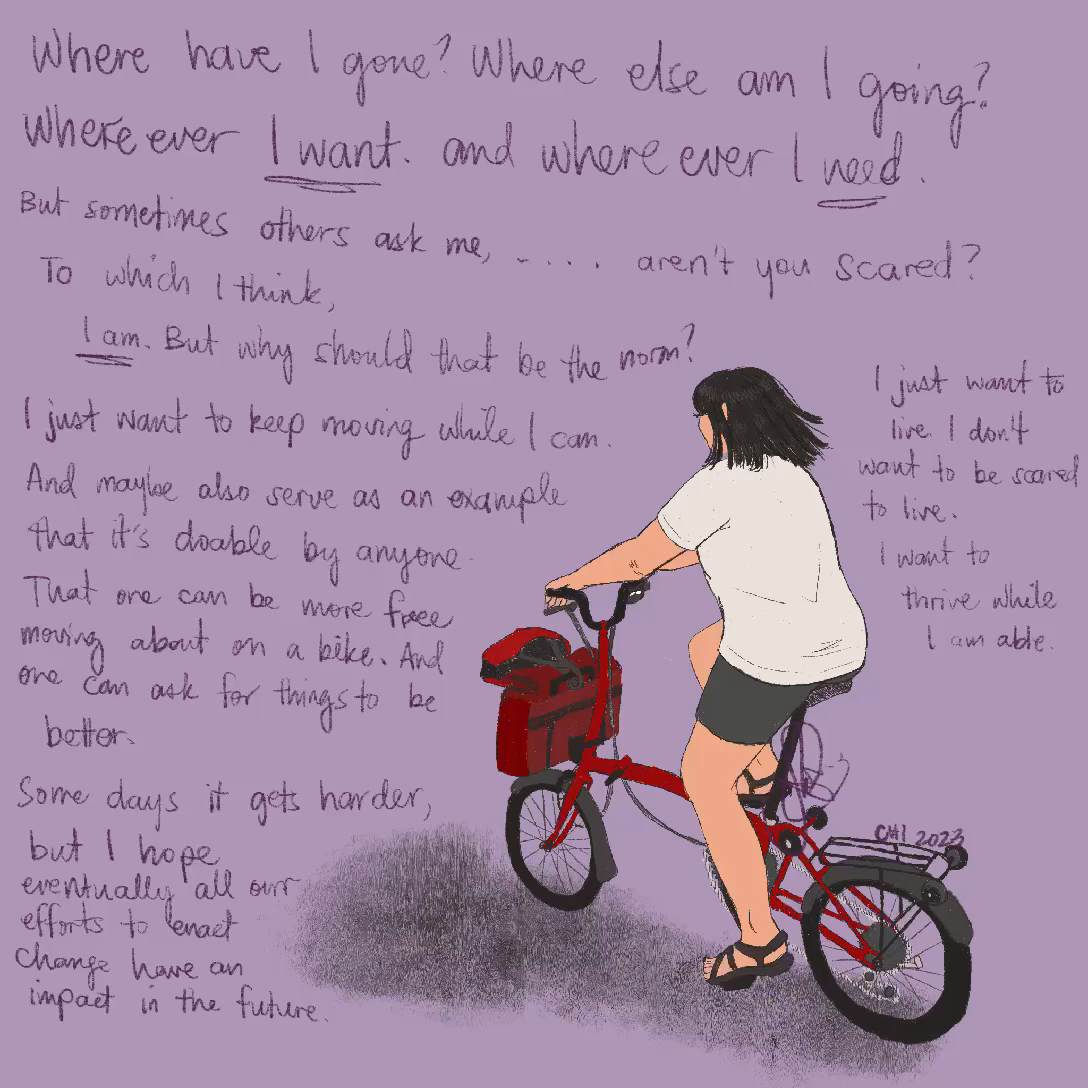 Where have I gone? Where else am I going?
Where ever I want. and where ever I need.
But sometimes others ask me, - . . . . aren't you scared?
To which I think,
I am. But why should that be the norm?
I just want to keep moving while I can.
And maybe also serve as an example
that it's doable by anyone.
That one can be more free
moving about on a bike. And
one can ask for things to be
better.
Some days it gets harder,
but I hope
eventually all our
efforts to enact
change have an
impact in the future.
I just want to
live. I don't
want to be scared
to live.
I want to
thrive while
I am able.
CHI 2023